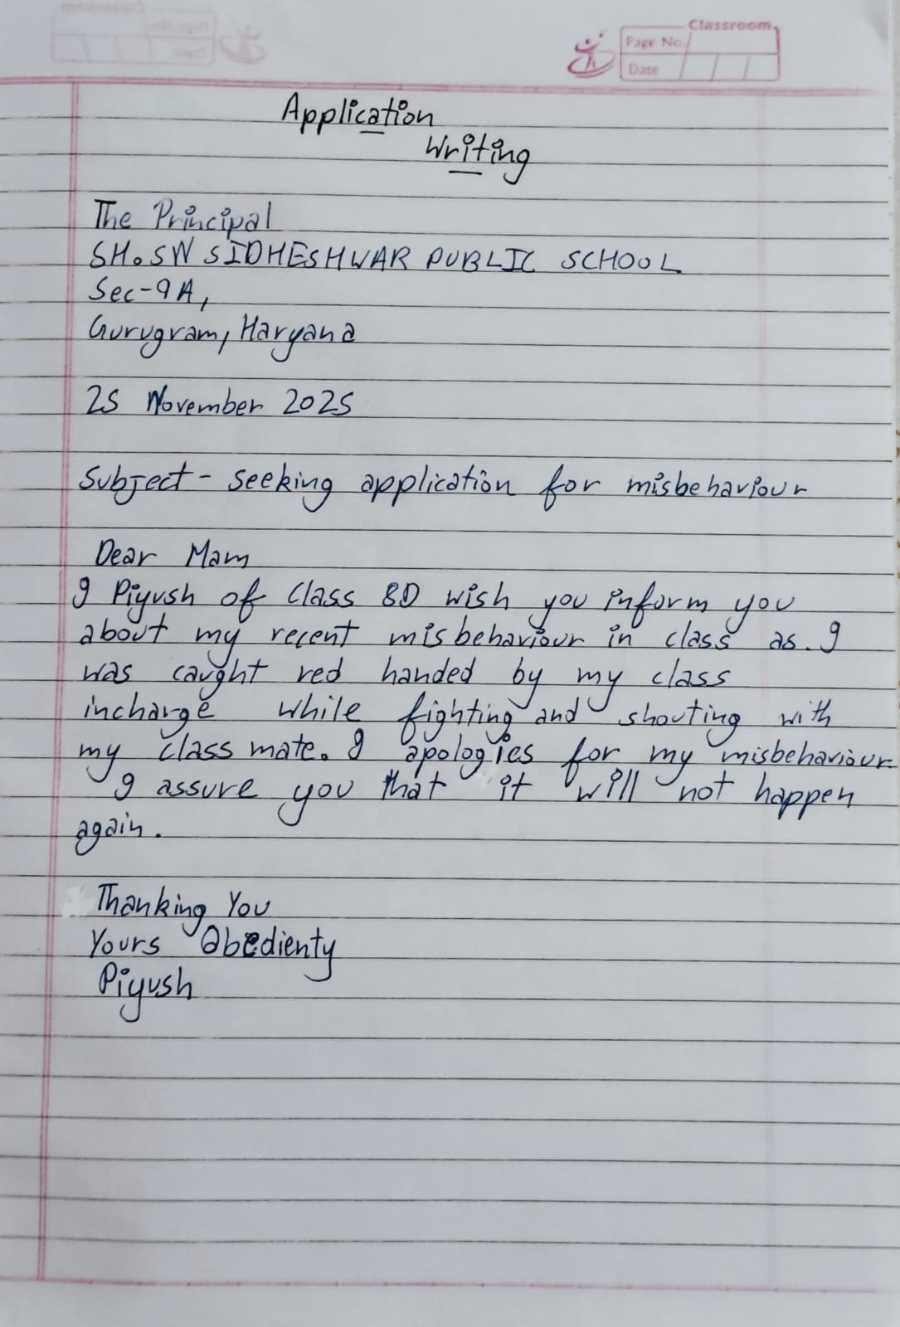 Classroom
Page No.
Date
Application
Writing
The Principal
SH. SN SIDHESHWAR PUBLIC SCHOOL
Sec-9A,
Gurugram, Haryana
25 November 2025
Subject - seeking application for misbehaviour
Dear Mam
I Piyush of Class 8D wish you inform you
about my recent misbehaviour in class as. I
was caught red handed by my class
incharge while fighting and shouting with
my classmate. I apologies for my misbehaviour
I assure you that it will not happen
again.
Thanking You
Yours Obedienty
Piyush